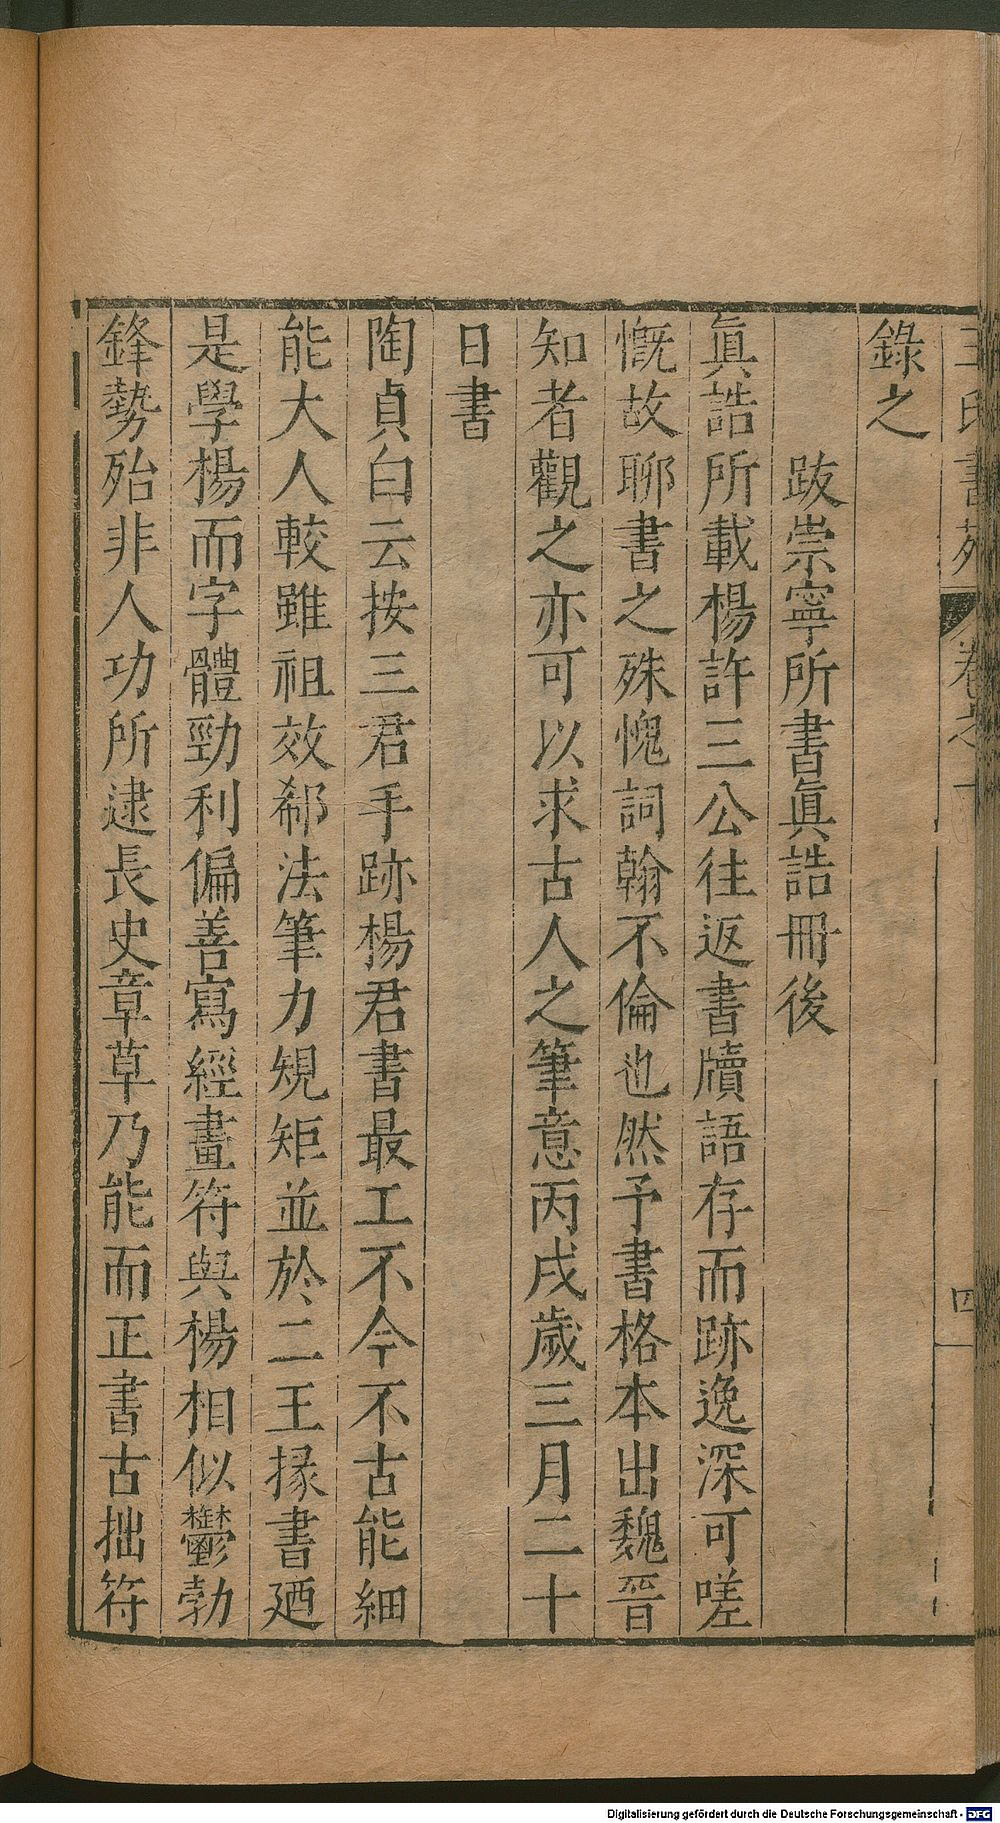 王氏書苑 卷之十 四
錄之
跋崇寧所書眞誥冊後
眞誥所載楊許三公往返書牘語存而跡逸深可嗟
慨故聊書之殊愧詞翰不倫也然予書格本出魏晉
知者觀之亦可以求古人之筆意丙戌歲三月二十
日書
陶貞白云按三君手跡楊君書最工不今不古能細
能大人較雖祖效郗法筆力規矩並於二王掾書廼
是學楊而字體勁利偏善寫經畫符與楊相似鬱勃
鋒勢殆非人功所逮長史章草乃能而正書古拙符
Digitalisierung gefördert durch die Deutsche Forschungsgemeinschaft - DFG